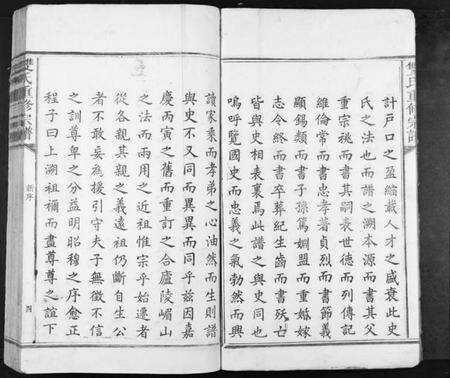 計戶口之盈縮載人才之盛衰此史
氏之法也而譜之溯本源而書其父
重宗祧而書其嗣表世德而列傳記
維倫常而書忠孝著貞烈而書節義
顯錫類而書子孫篤姻盟而重婚嫁
志令終而書卒葬紀生齒而書殀亡
皆與史相表裏焉此譜之與史同也
嗚呼覽國史而忠義之氣勃然而興
讀家乘而孝弟之心油然而生則譜
與史不又同而異異而同乎茲因嘉
慶丙寅之舊而重訂之合廬陵嵋山
之法而兩用之近祖惟宗乎始遷者
從各親其親之義遠祖仍斷自生公
者不敢妄為援引守夫子無徵不信
之訓尊卑之分益明昭穆之序愈正
程子曰上溯祖禰而盡尊尊之誼下
氏重修宗譜
新序
四